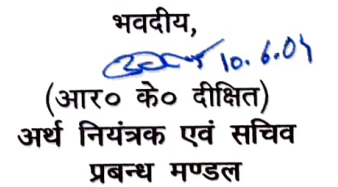 भवदीय,
10.6.04
(आर० के० दीक्षित)
अर्थ नियंत्रक एवं सचिव
प्रबन्ध मण्डल